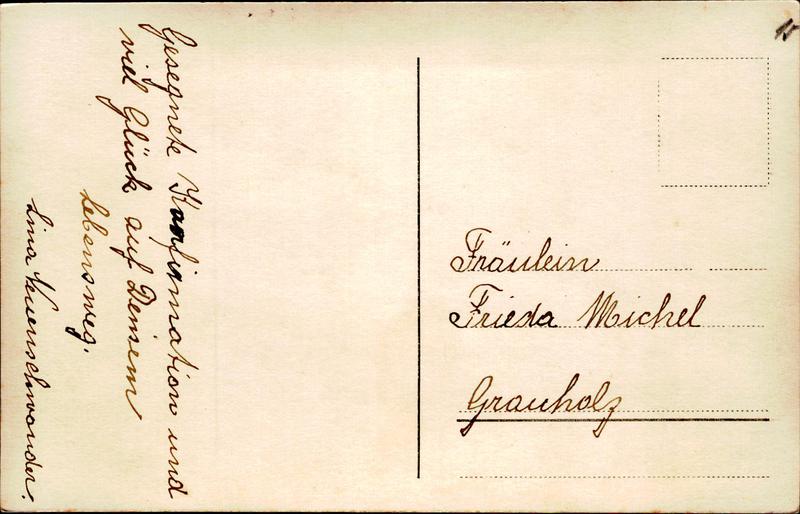 Gesegnete Konfirmation und
viel Glück auf Deinem
Lebensweg.
Lina Neuenschwander.
Fräulein
Frieda Michel
Grauholz